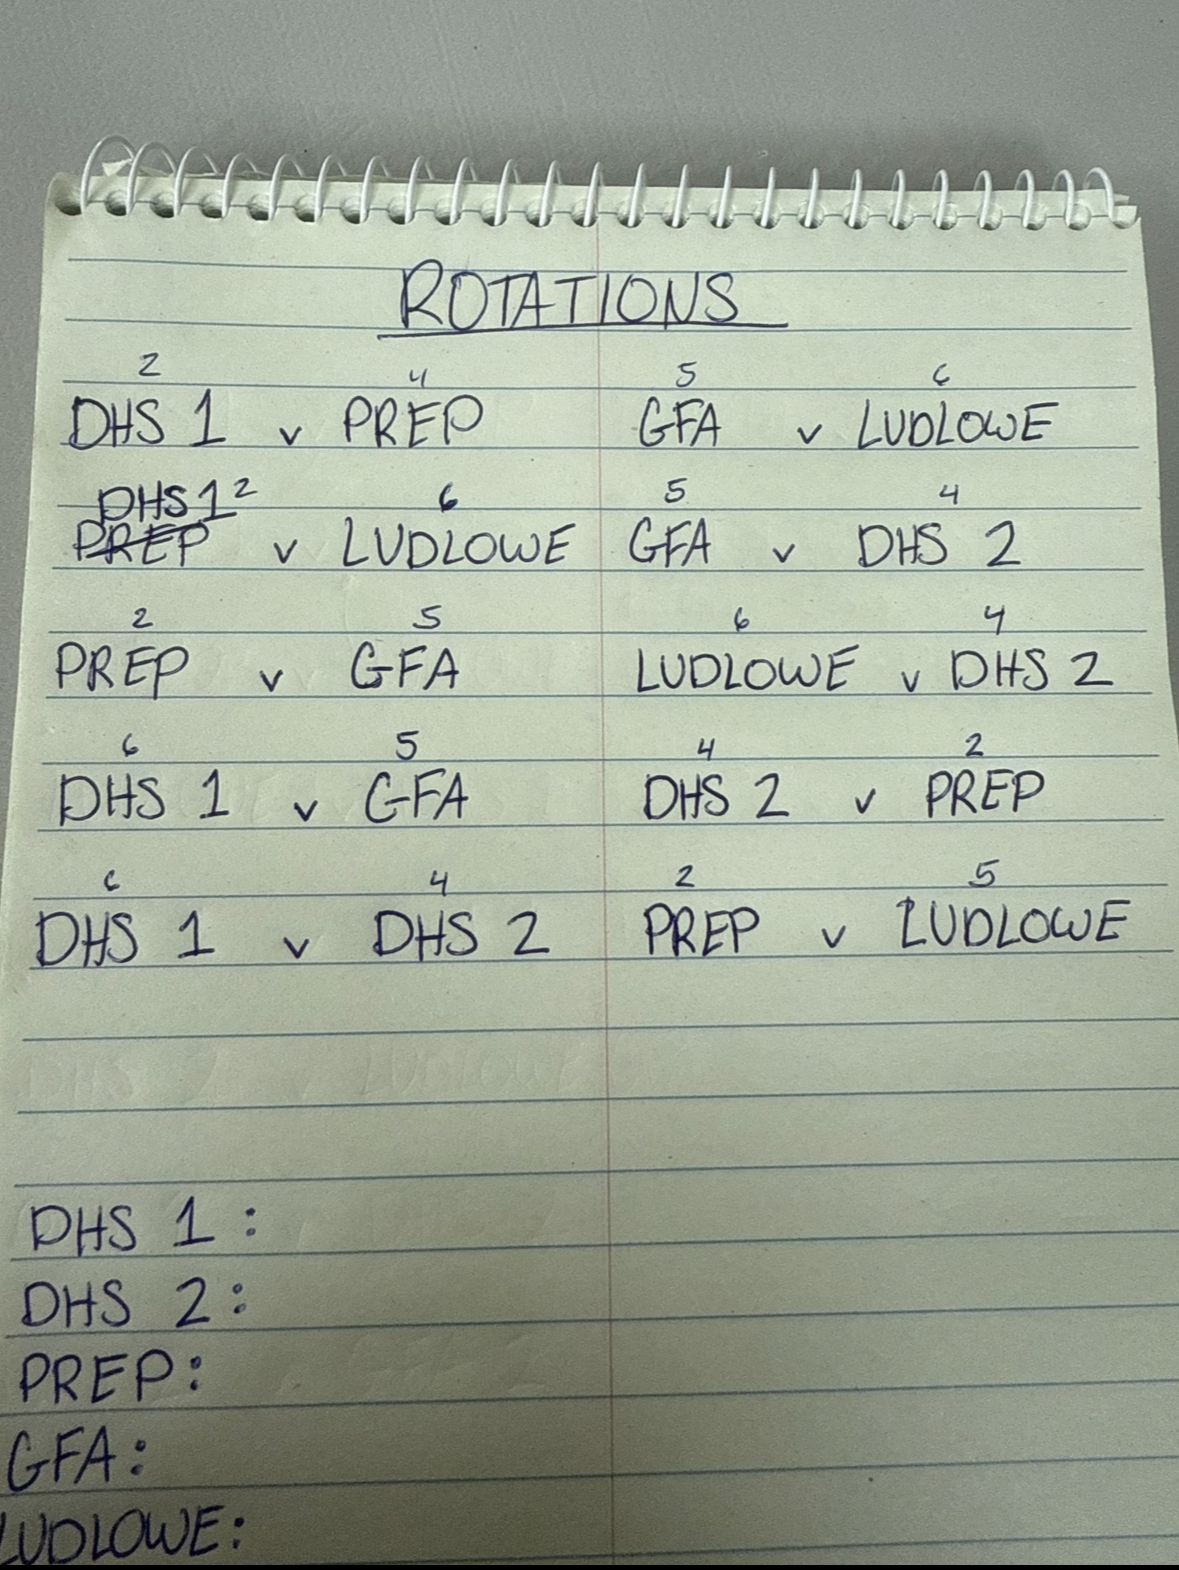 ROTATIONS
2 4 5 6
DHS 1 v PREP GFA v LUDLOWE
DHS 1 2 6 5 4
PREP v LUDLOWE GFA v DHS 2
2 5 6 4
PREP v GFA LUDLOWE v DHS 2
6 5 4 2
DHS 1 v GFA DHS 2 v PREP
6 4 2 5
DHS 1 v DHS 2 PREP v LUDLOWE
DHS 1 :
DHS 2 :
PREP:
GFA:
LUDLOWE: